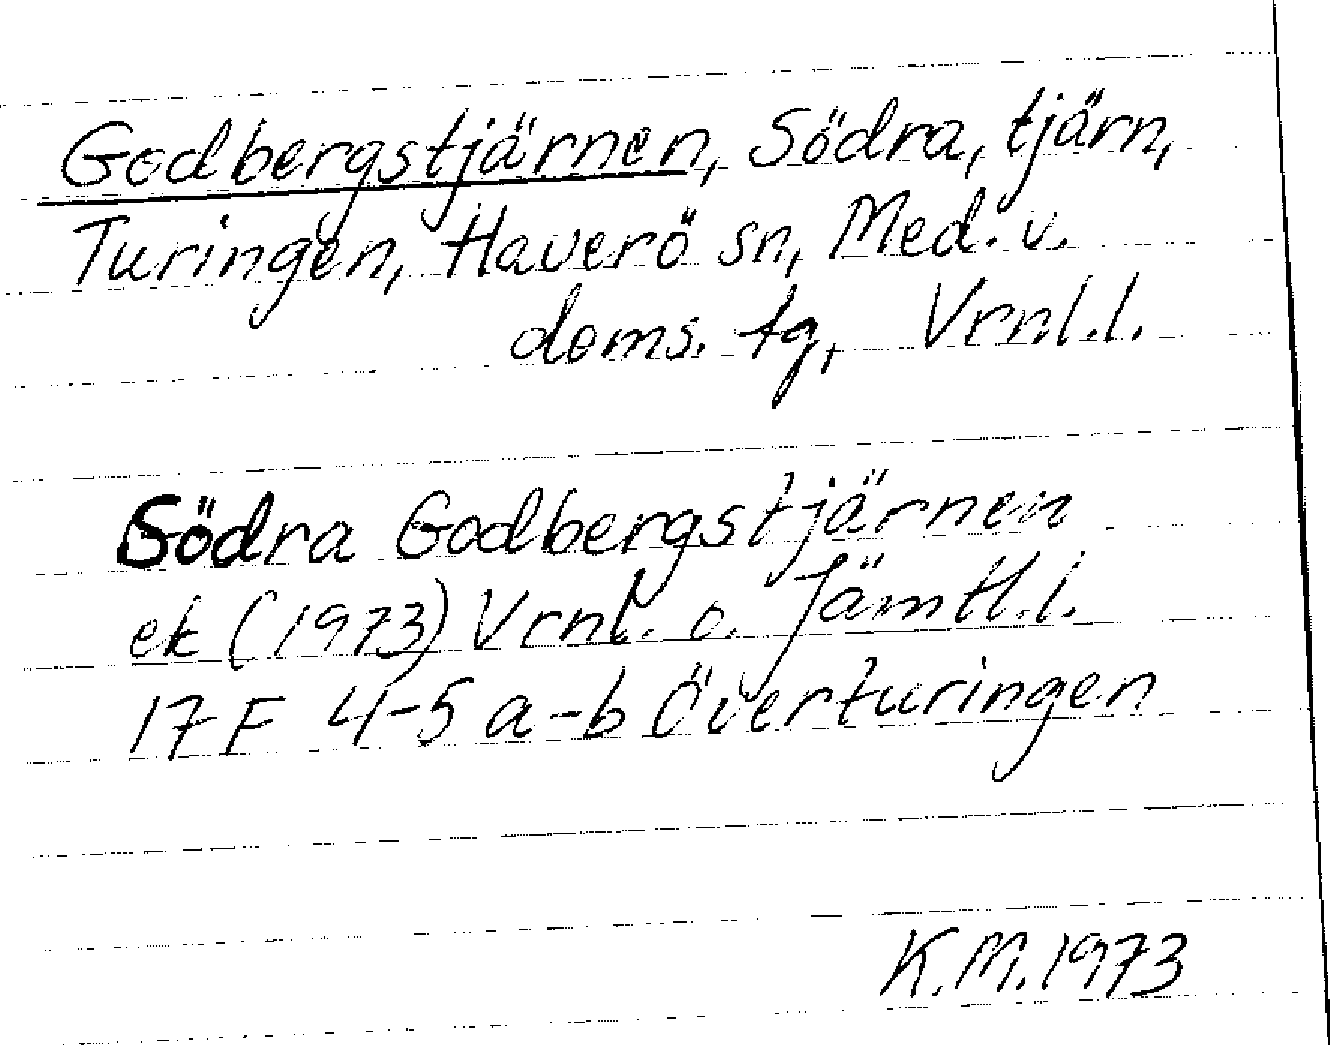 Godbergstjärnen, Södra, tjärn,
Turingen, Haverö sn, Med. v.
doms. tg, Vrnl.l.
Södra Godbergstjärnen
ek (1973) Vrnl. o. Jämtl.l.
17F 4-5 a-b Överturingen
K.M. 1973